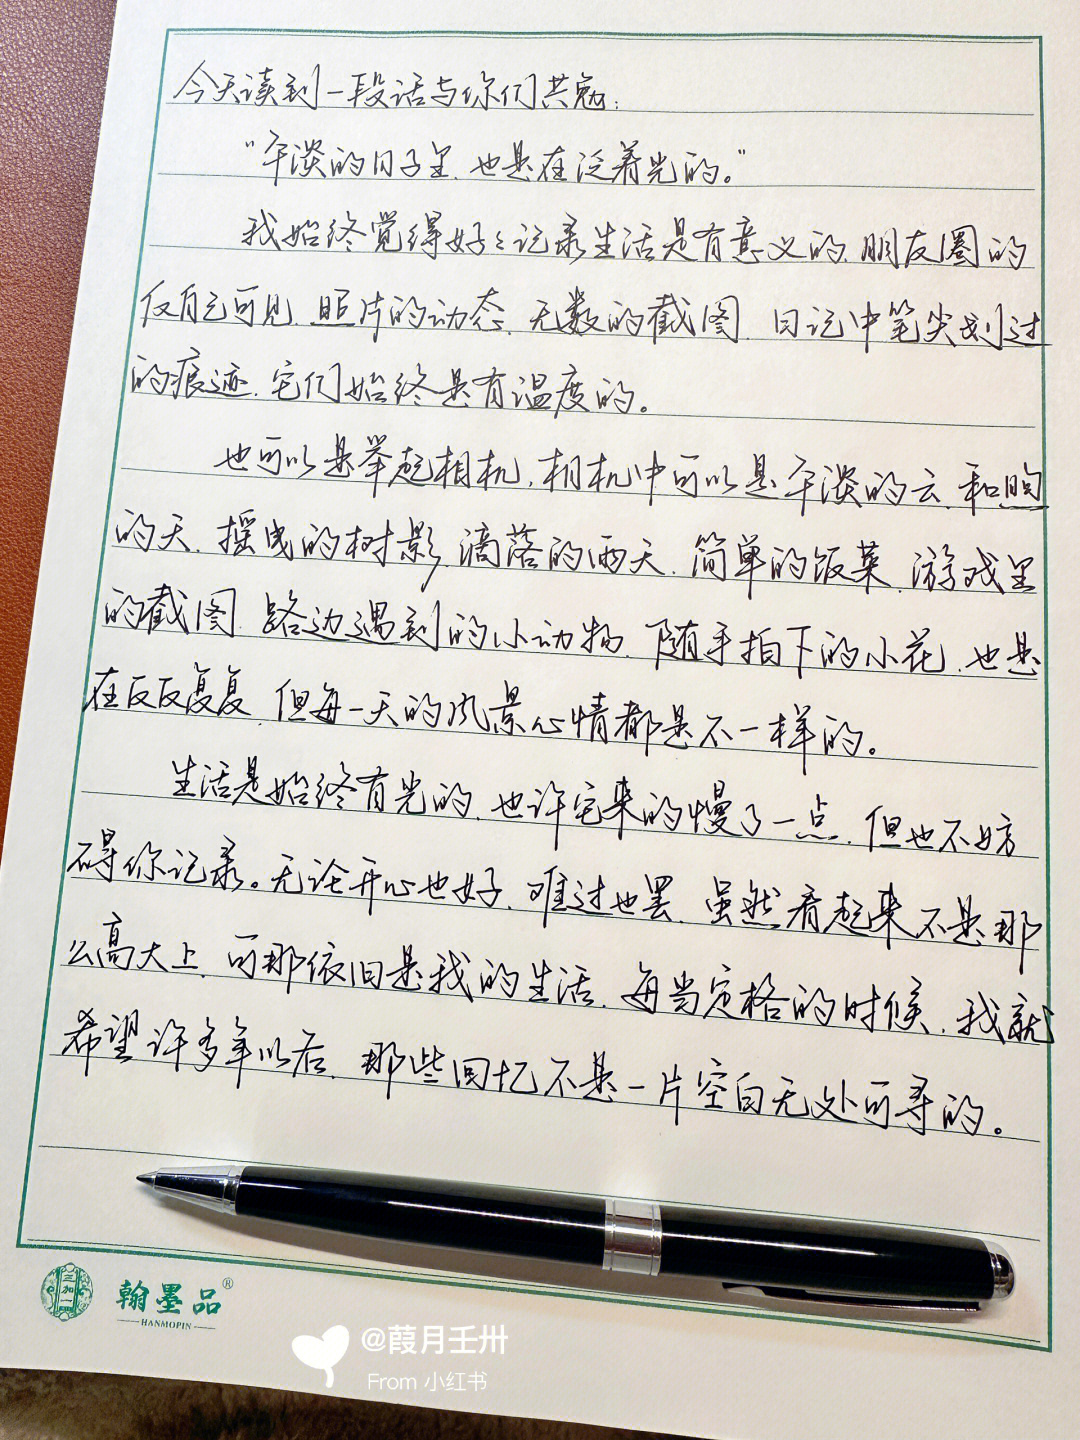 今天读到一段话与你们共勉：
“平淡的日子里，也是在泛着光的。”
我始终觉得好好记录生活是有意义的，朋友圈的
仅自己可见，照片的动态，无数的截图，日记中笔尖划过
的痕迹，它们始终是有温度的。
也可以是举起相机，相机中可以是平淡的云，和煦
的天，摇曳的树影，滴落的雨天，简单的饭菜，游戏里
的截图，路边遇到的小动物，随手拍下的小花，也是
在反反复复，但每一天的风景心情都是不一样的。
生活是始终有光的，也许它来的慢了一点，但也不妨
碍你记录。无论开心也好，难过也罢，虽然看起来不是那
么高大上，可那依旧是我的生活，每当定格的时候，我就
希望许多年以后，那些回忆不是一片空白无处可寻的。
三加一
翰墨品®
HANMOPIN
@葭月壬卅
From 小红书